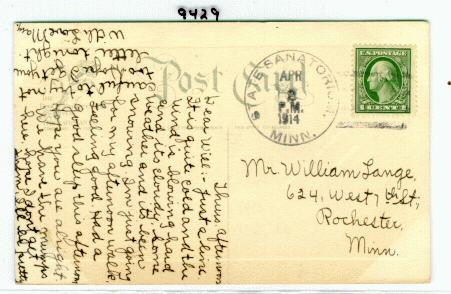 9429
Post Card
STATE SANATORIUM
APR
2
P.M.
1914
MINN.
U.S. POSTAGE
1 CENT 1
Mr. William Lange,
624, West 7th St,
Rochester,
Minn.
Thurs. afternoon
Dear Will:- Just a line
It is quite cold and the
wind is blowing hard
and its cloudy & some
weather and its been
snowing. I'm just going
for my afternoon walk.
feeling good. Had a
good sleep this afternoon
Hope you are alright
We have the mumps
here, hope I don't get
them. I'll be
careful to try not
too hope I get your
letter tonight
With Love May